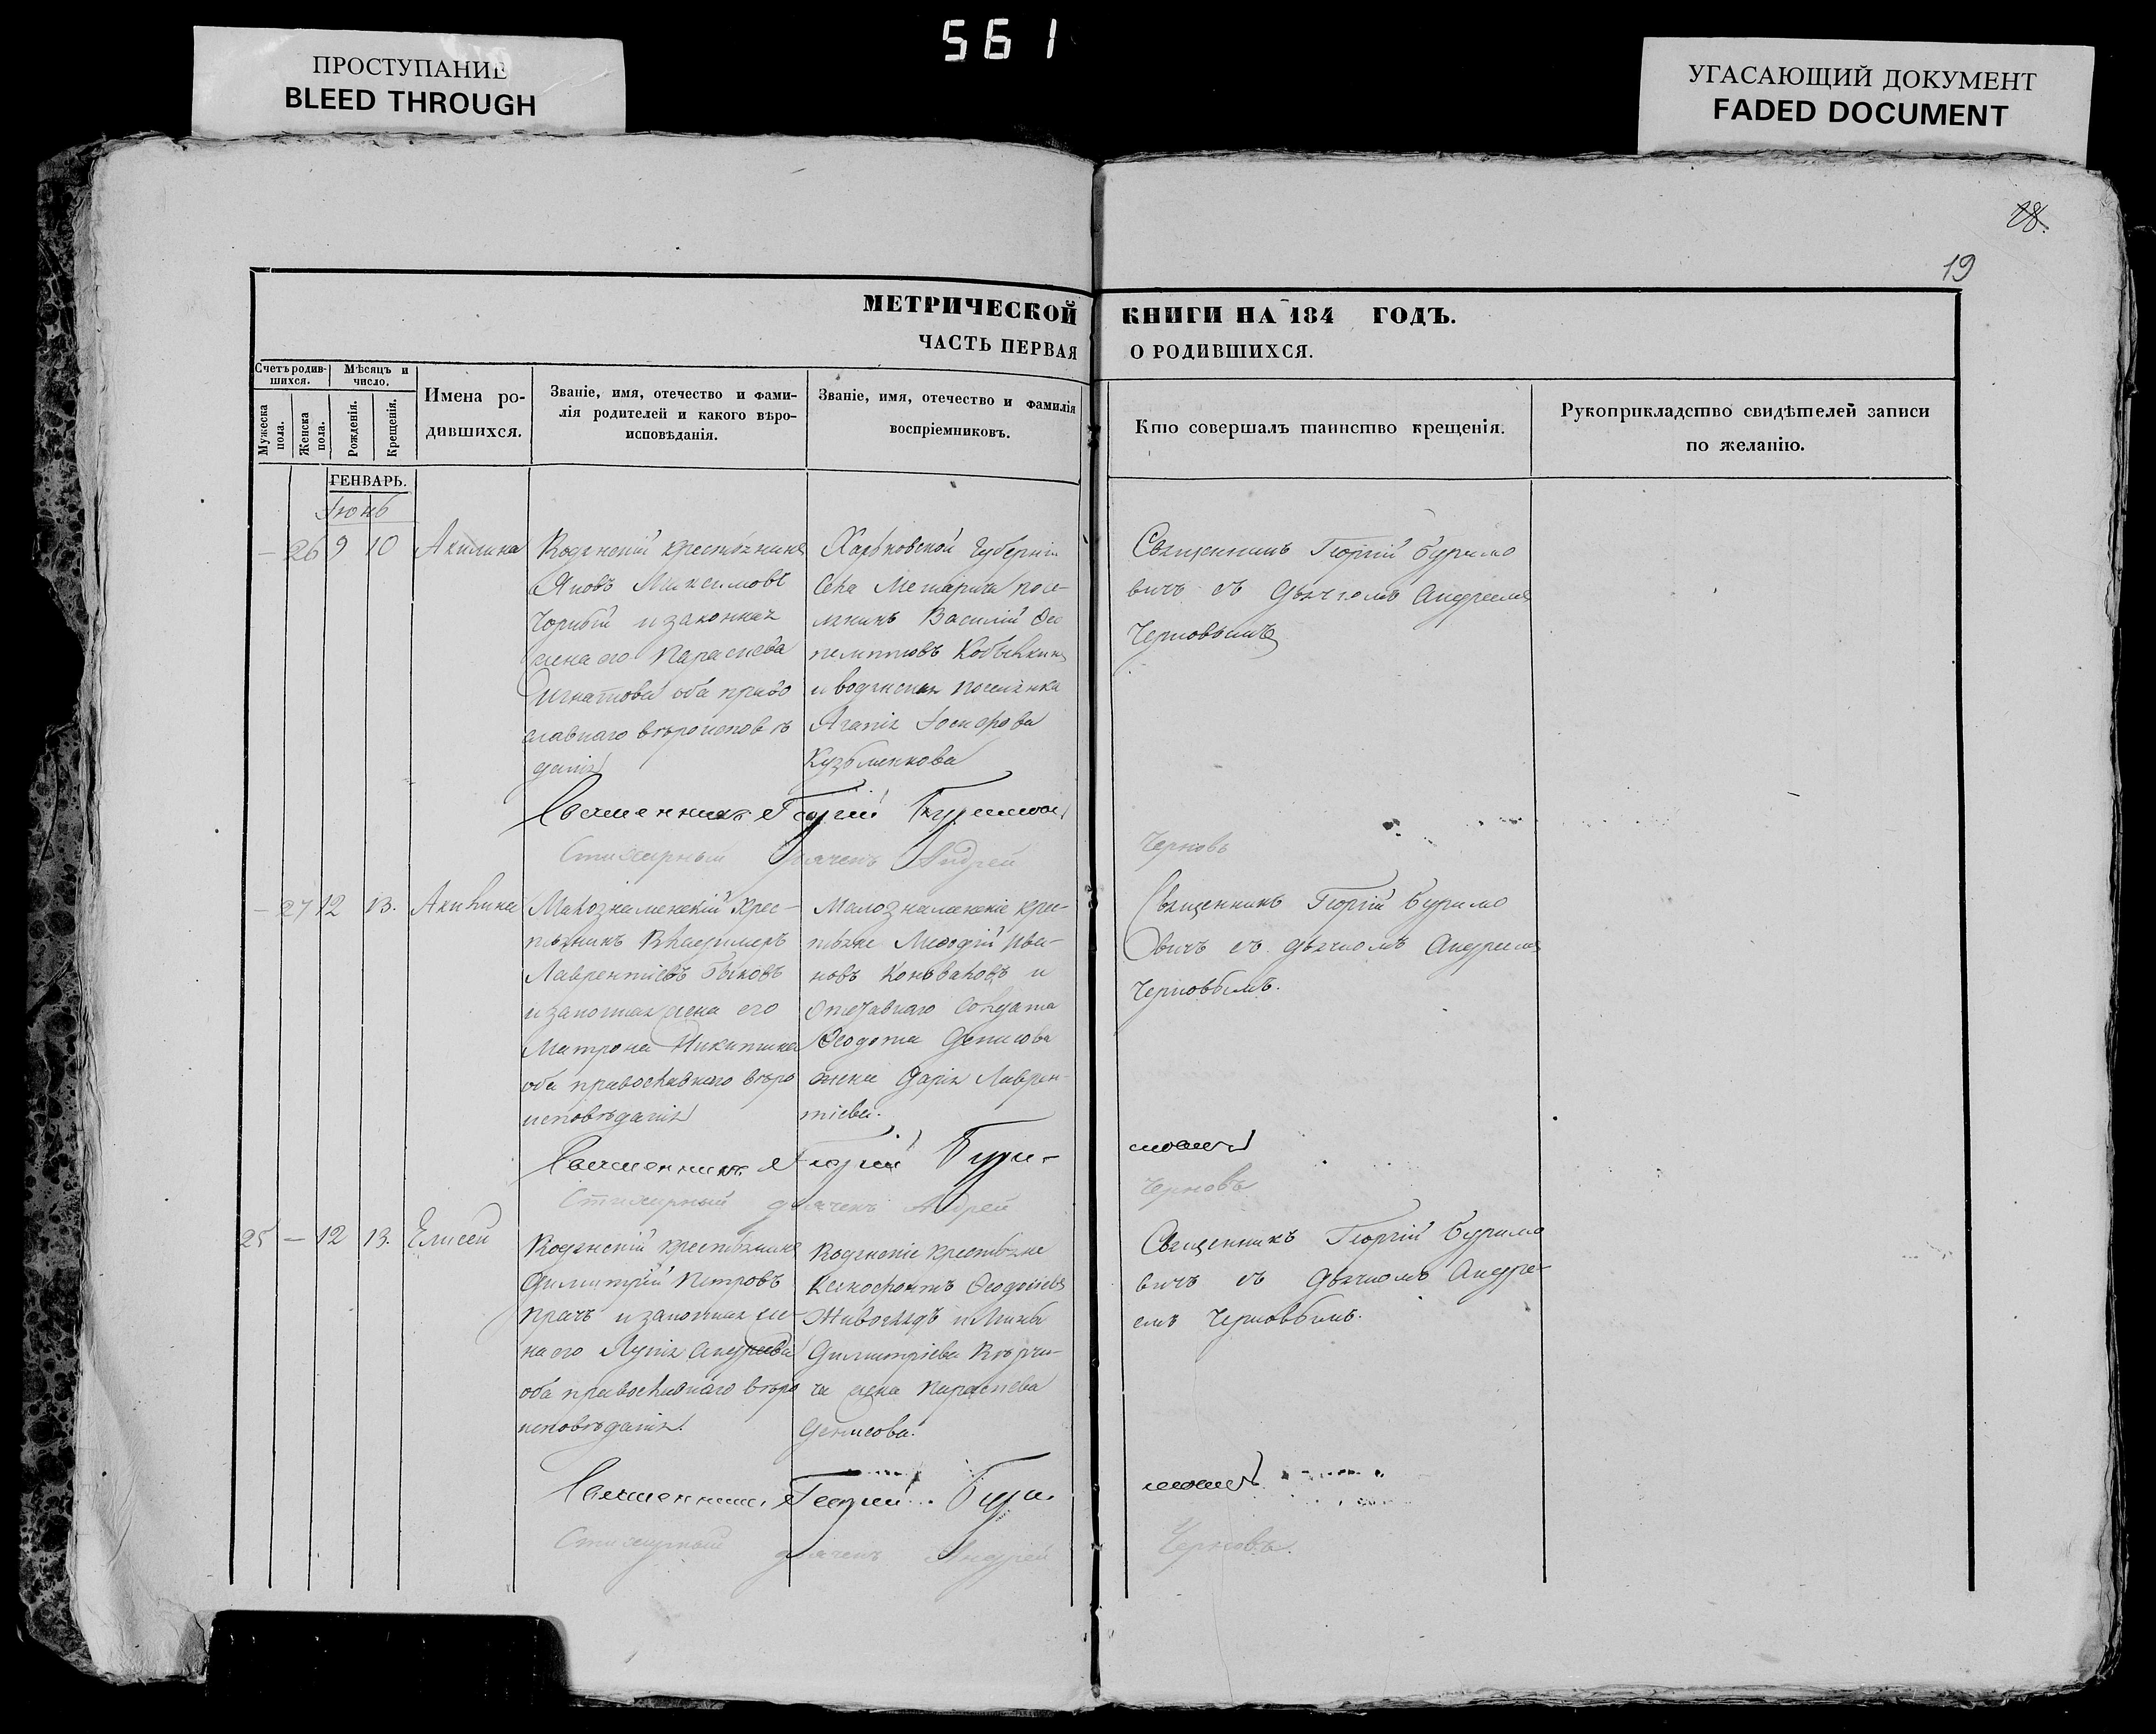 561
ПРОСТУПАНИЕ
BLEED THROUGH
УГАСАЮЩИЙ ДОКУМЕНТ
FADED DOCUMENT
18.
19
МЕТРИЧЕСКОЙ КНИГИ НА 184 ГОДЪ.
ЧАСТЬ ПЕРВАЯ О РОДИВШИХСЯ.
Счетъ родив-
шихся.
Мѣсяцъ и
число.
Мужеска
пола.
Женска
пола.
Рожденія.
Крещенія.
Имена ро-
дившихся.
Званіе, имя, отечество и фами-
лія родителей и какого вѣро-
исповѣданія.
Званіе, имя, отечество и фамилія
воспріемниковъ.
Кто совершалъ таинство крещенія.
Рукоприкладство свидѣтелей записи
по желанію.
ГЕНВАРЬ.
Іюнь
— 26 9 10 Акилина
Водянскій крестьянинъ
Яковъ Максимовъ
Чорный и законная
жена его Параскева
Игнатова оба право
славнаго вѣроисповѣ
данія
Харьковской Губерніи
Села посе-
лянинъ Василій
и водянская поселянка
Агапія Іосифова
Кузьменкова
Священникъ Георгій Буримо
вичъ съ дьячкомъ Андреемъ
Черновымъ
Священникъ Георгій Буримович
Стихарный дьячекъ Андрей
Черновъ
— 27 12 13. Акилина
Малознаменскій крес-
тьянинъ Владимеръ
Лаврентіевъ Быковъ
и законная жена его
Матрона Никитина
оба православнаго вѣро
исповѣданія
Малознаменскіе крес-
тьяне Меѳодій Ива-
новъ Коноваловъ и
Отставнаго Солдата
Ѳеодота Денисова
жена Дарія Лаврен-
тіева.
Священникъ Георгій Буримо
вичъ съ дьячкомъ Андреемъ
Черновымъ.
Священникъ Георгій Бури-
мовичъ
Стихарный дьячекъ Андрей
Черновъ
25 — 12 13. Елисей
Водянскій крестьянинъ
Димитрій Петровъ
Прачъ и законная же-
на его Андреева
оба православнаго вѣро
исповѣданія.
Водянскіе крестьяне
Ксенофонтъ Ѳеодосіевъ
и Луки
Димитріева
жена Параскева
Денисова.
Священникъ Георгій Буримо
вичъ съ дьячкомъ Андре-
емъ Черновымъ.
Священникъ Георгій Бури-
мовичъ
Стихарный дьячекъ Андрей
Черновъ.